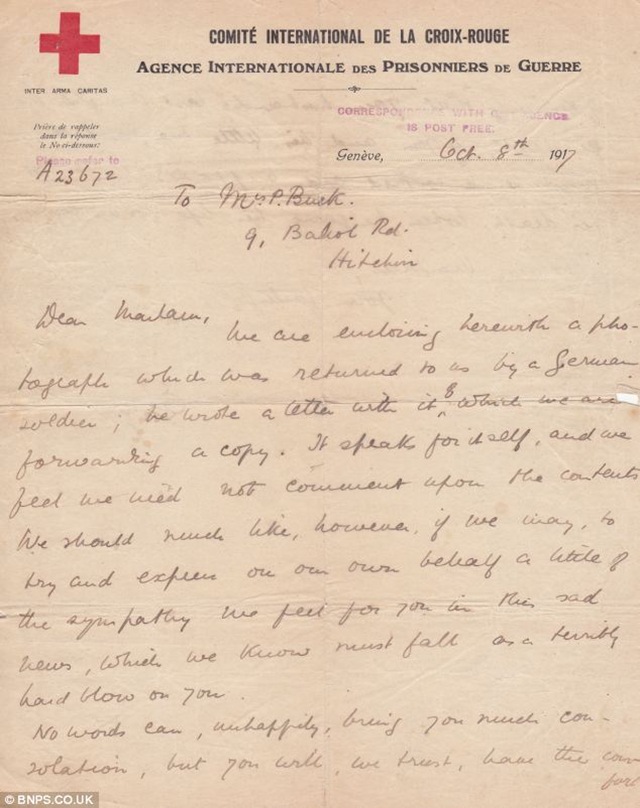 COMITÉ INTERNATIONAL DE LA CROIX-ROUGE
AGENCE INTERNATIONALE DES PRISONNIERS DE GUERRE
INTER ARMA CARITAS
Prière de rappeler
dans la réponse
le No ci-dessous:
Please refer to
A 23672
CORRESPONDENCE WITH
IS POST FREE.
Genève, Oct. 8th 1917
To Mrs P. Buck.
9, Baliol Rd.
Hitchin
Dear Madam,
We are enclosing herewith a pho-
tograph which was returned to us by a German
soldier; he wrote a letter with it, & which we are
forwarding a copy. It speaks for itself, and we
feel we need not comment upon the contents
We should much like, however, if we may, to
try and express on our own behalf a little of
the sympathy we feel for you in this sad
news, which we know must fall as a terribly
hard blow on you.
No words can, unhappily, bring you much con-
solation, but you will, we trust, have the com
fort
© BNPS.CO.UK